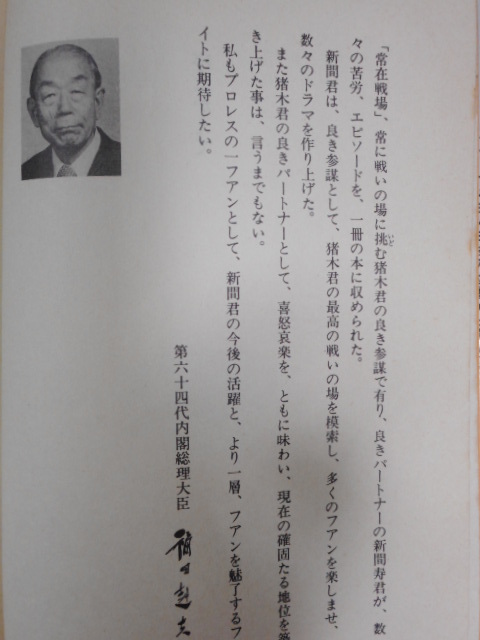 「常在戦場」、常に戦いの場に挑む猪木君の良き参謀で有り、良きパートナーの新間寿君が、数
いど
々の苦労、エピソードを、一冊の本に収められた。
新間君は、良き参謀として、猪木君の最高の戦いの場を模索し、多くのフアンを楽しませ、
数々のドラマを作り上げた。
また猪木君の良きパートナーとして、喜怒哀楽を、ともに味わい、現在の確固たる地位を築
き上げた事は、言うまでもない。
私もプロレスの一フアンとして、新間君の今後の活躍と、より一層、フアンを魅了するフ
イトに期待したい。
第六十四代内閣総理大臣